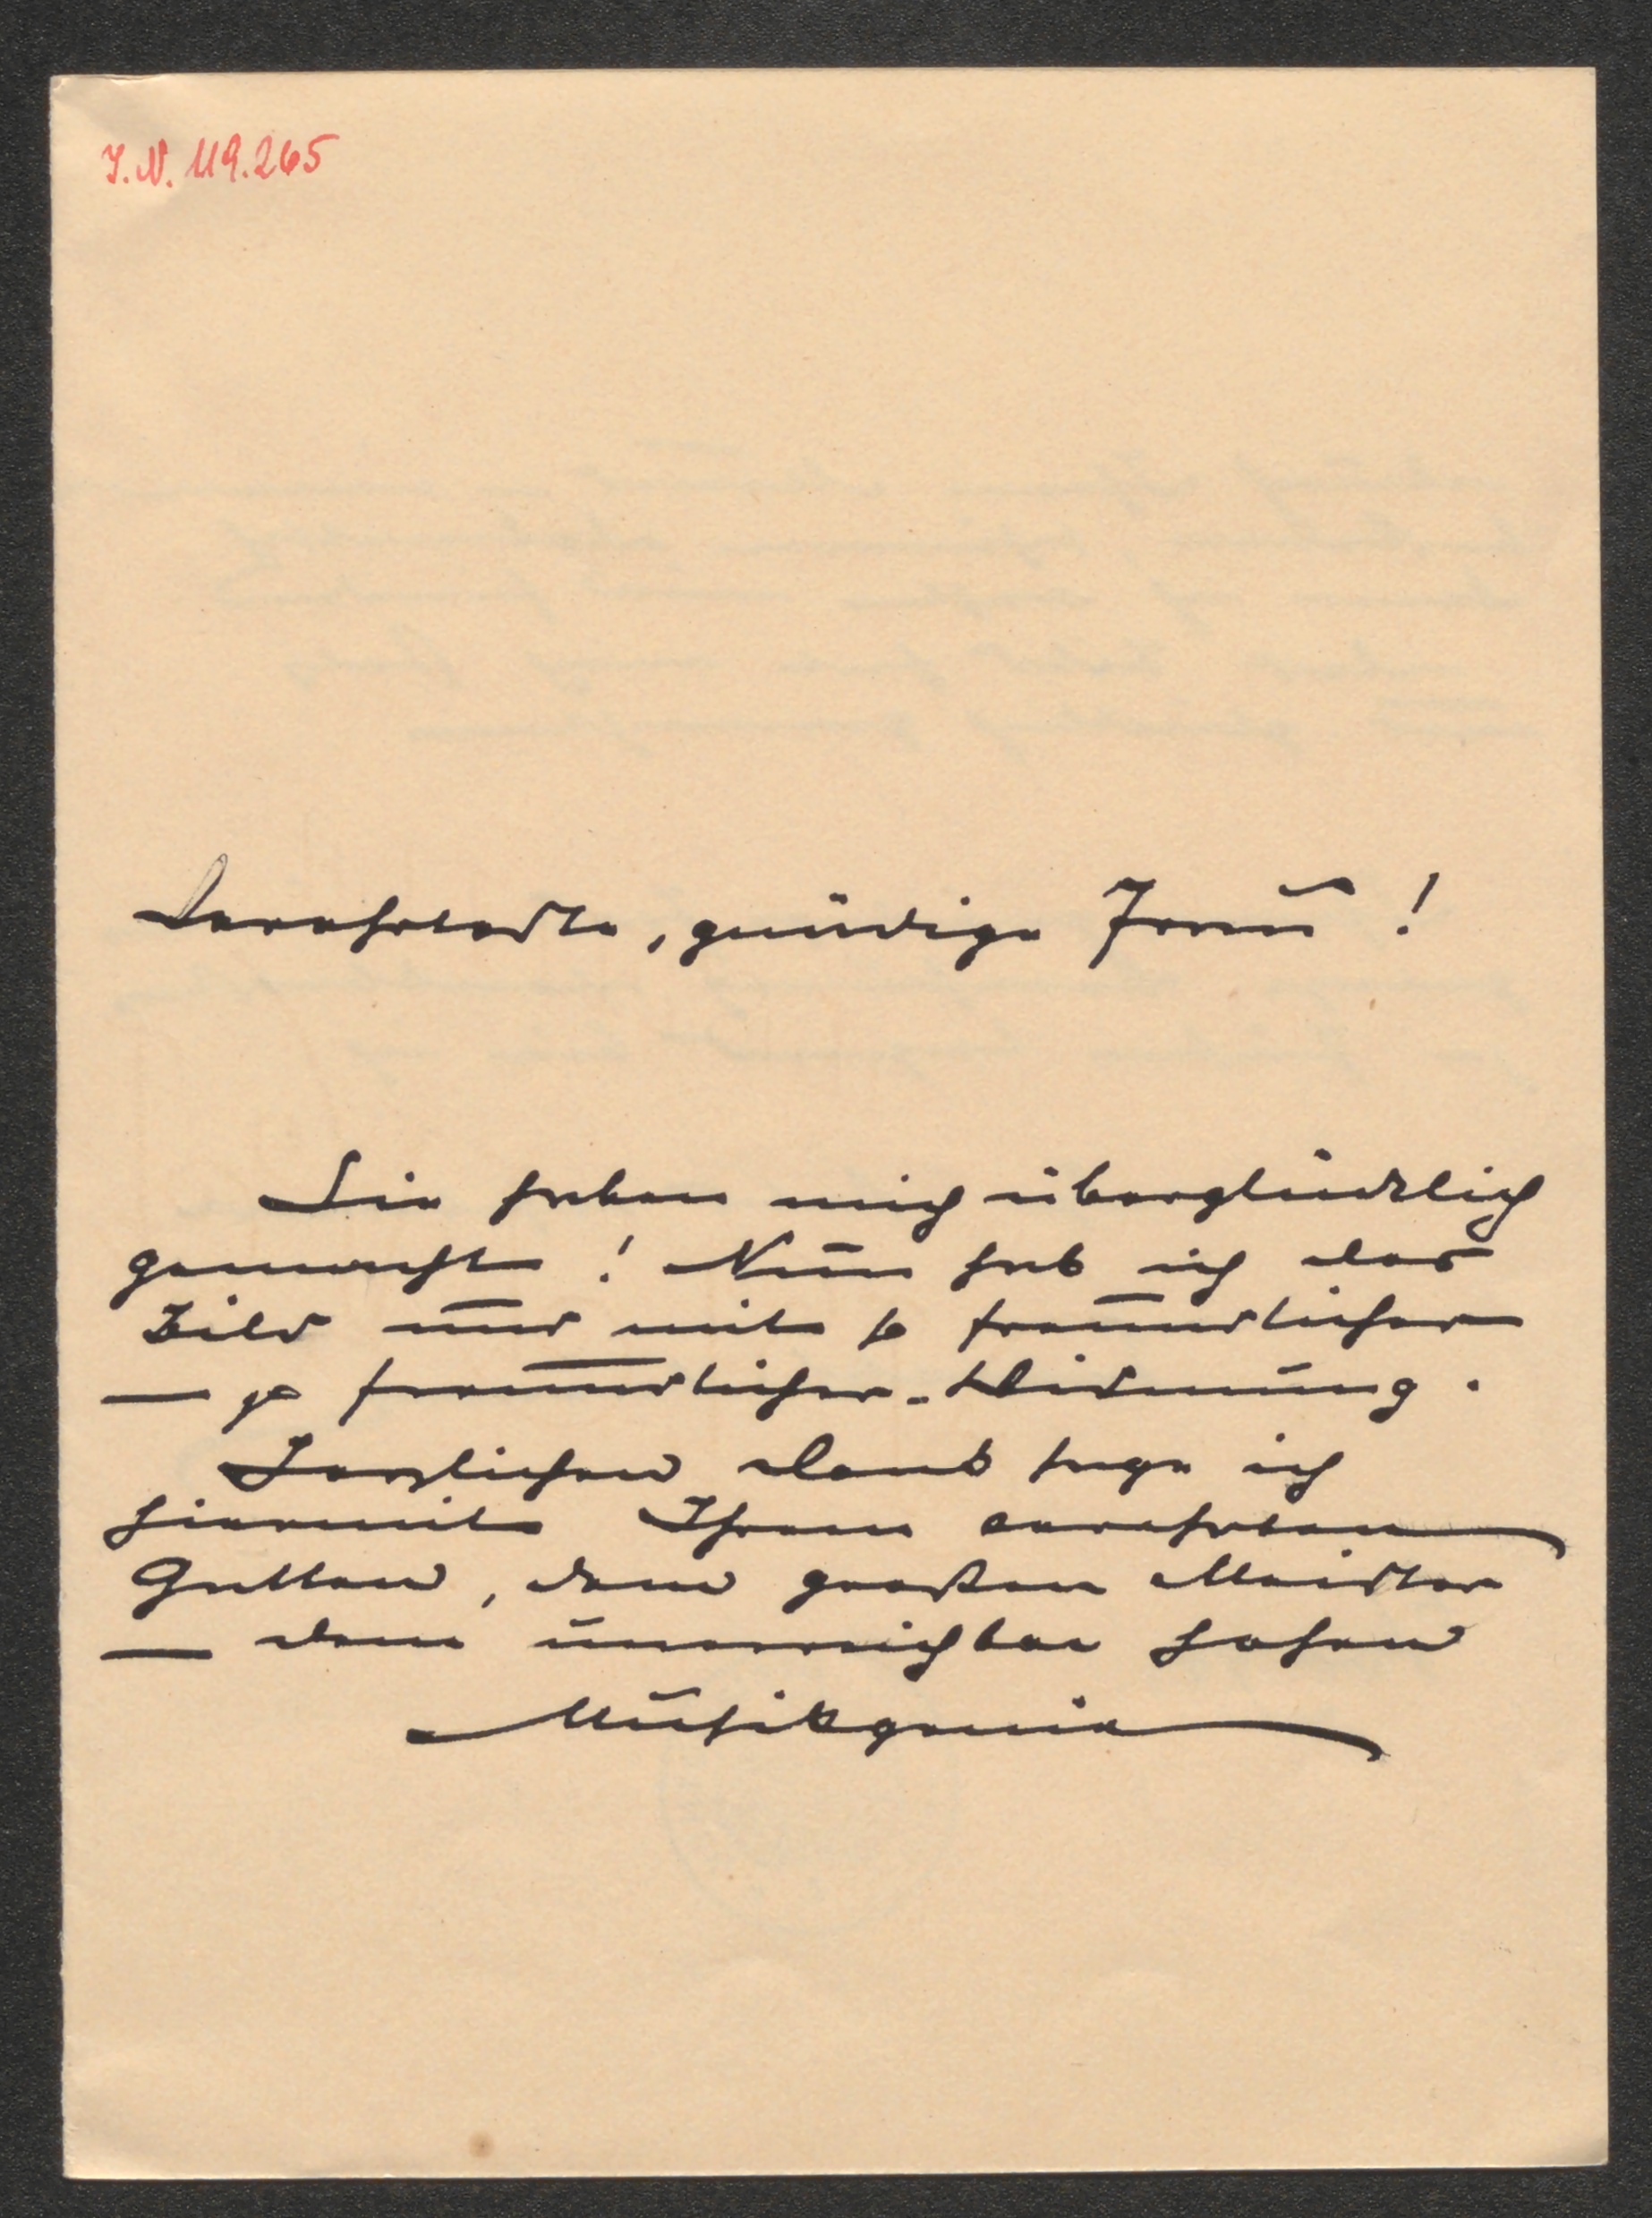 I.N. 119.265
Verehrteste, gnädige Frau !
Sie haben mich überglücklich
gemacht ! Nun hab ich das
Bild und mit so freundlicher
— so freundlicher Widmung .
Herzlichen Dank sage ich
hiermit Ihrem verehrten
Gatten , dem großen Meister
— dem unerreichbar hohen
Musikgenie